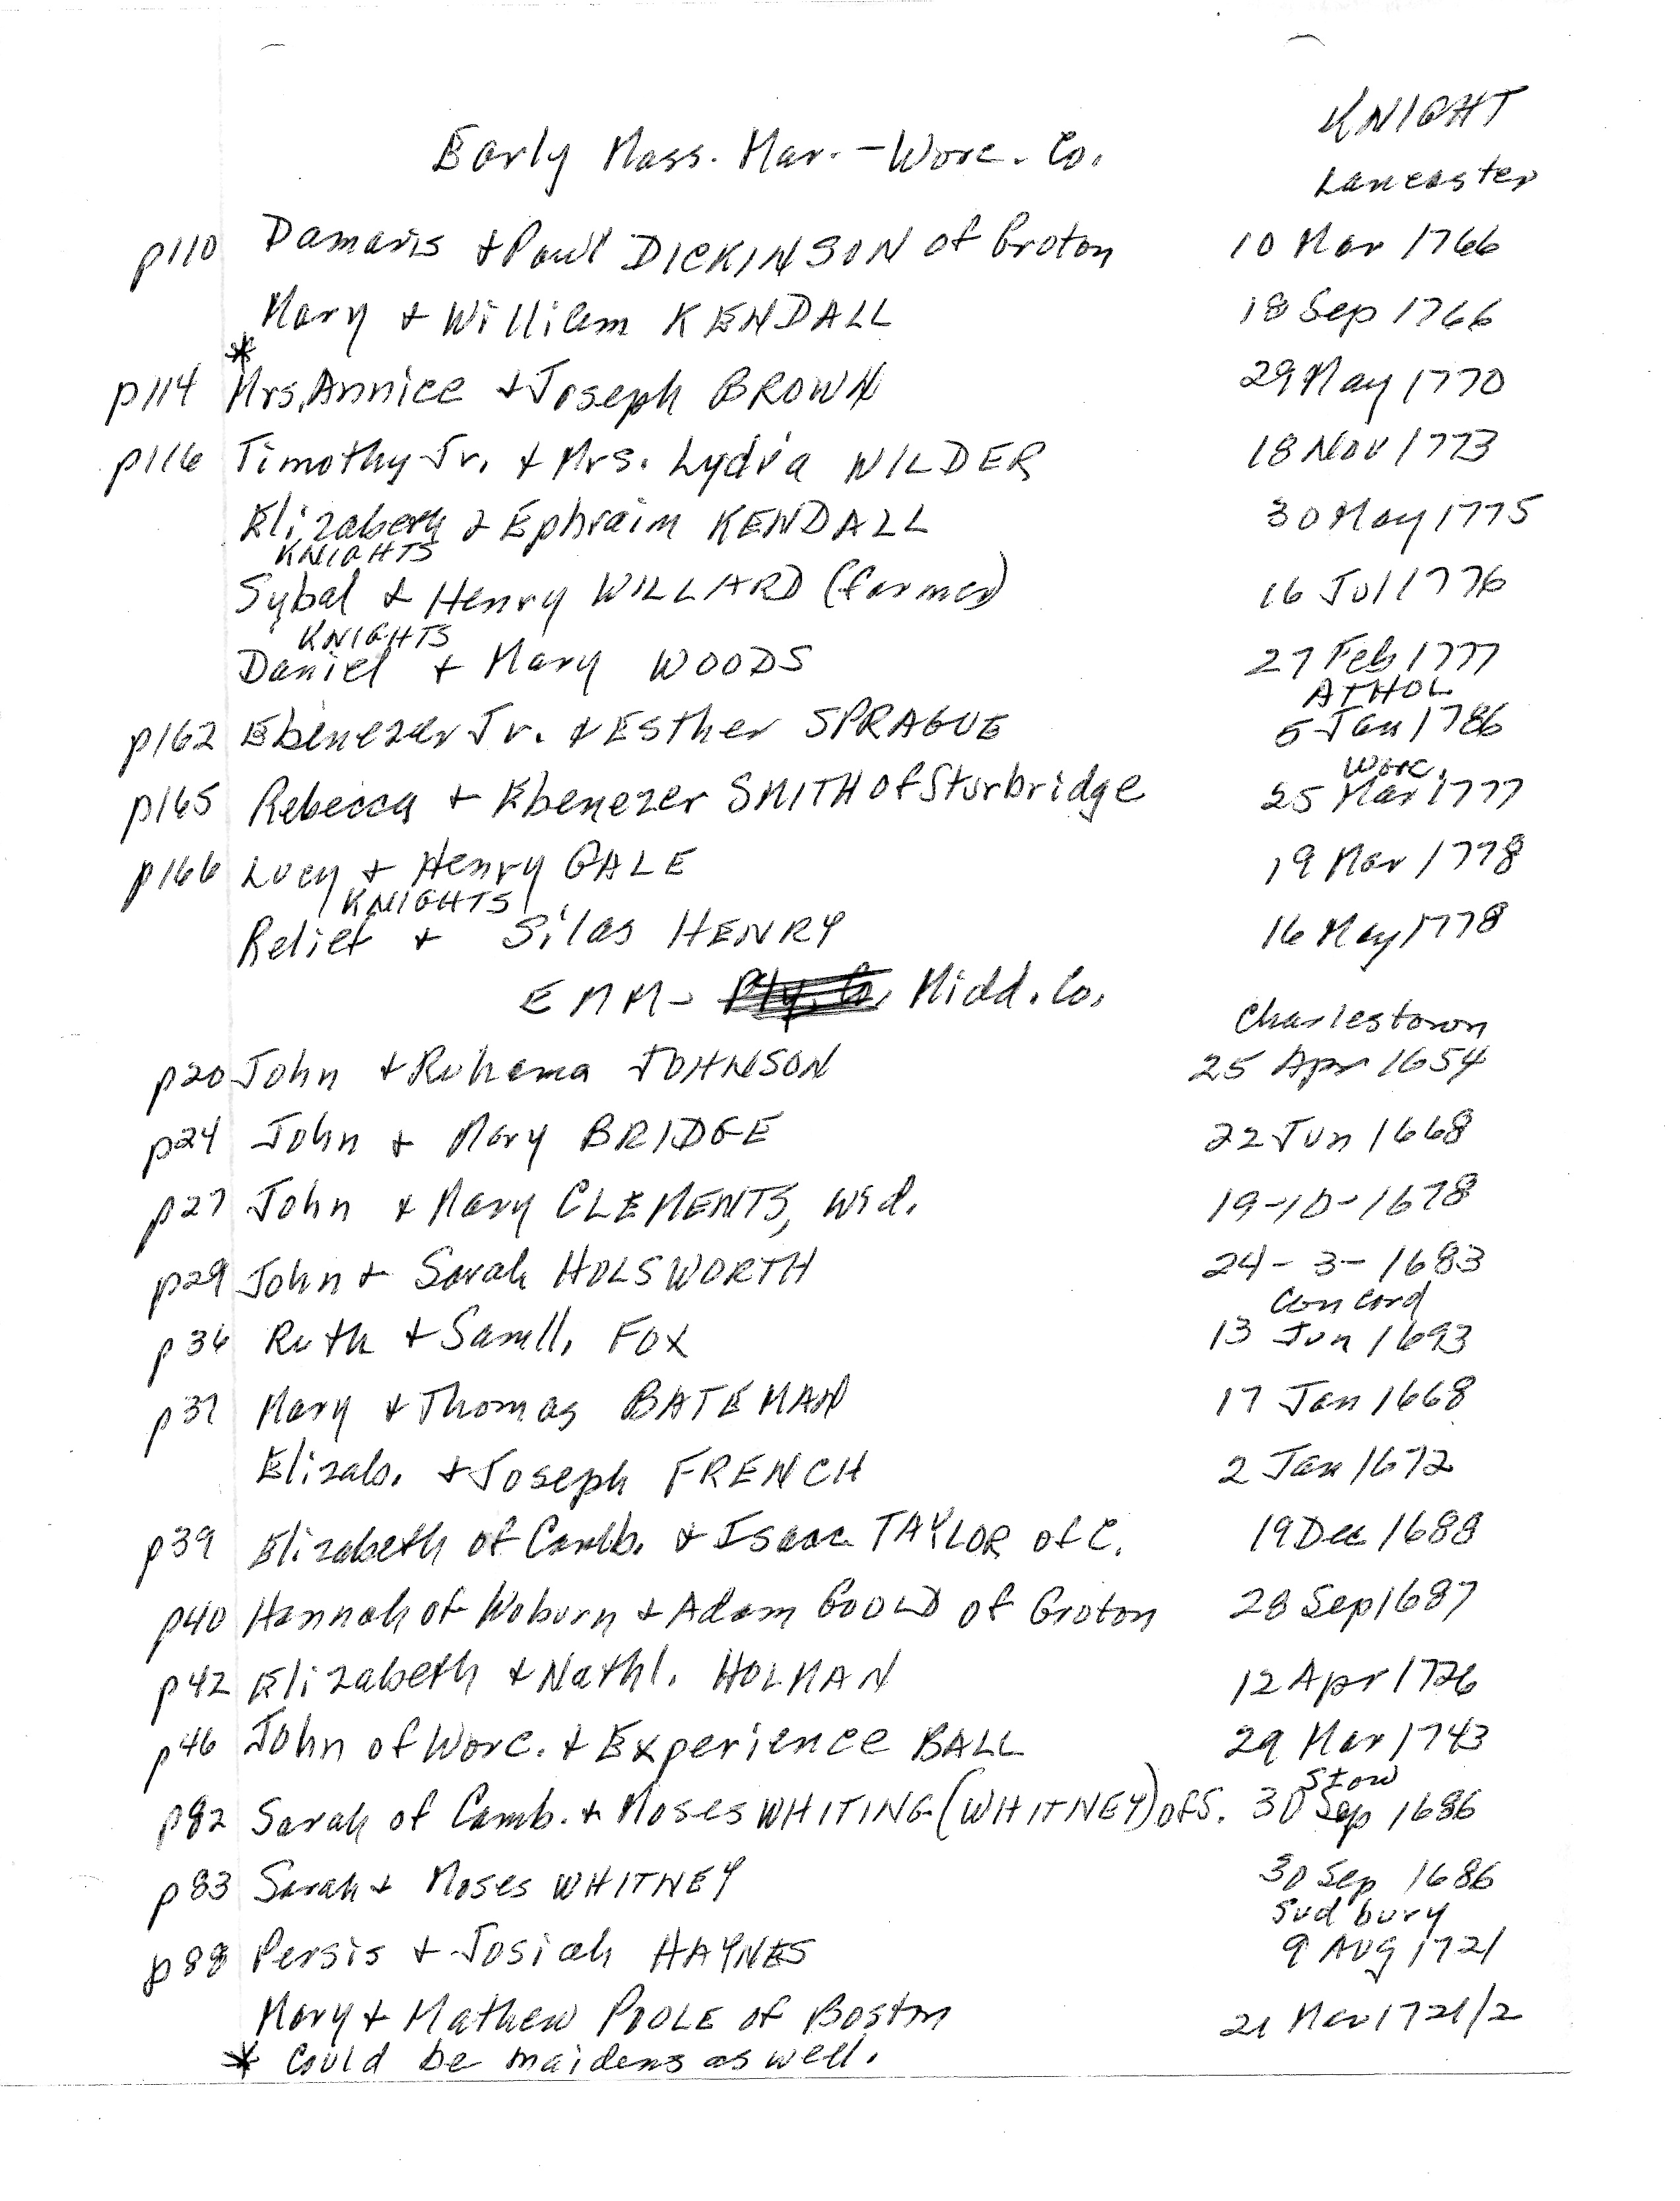 KNIGHT
Early Mass. Mar. - Worc. Co.
Lancaster
p110 Damaris + Paul DICKINSON of Groton 10 Mar 1766
Mary + William KENDALL 18 Sep 1766
*
p114 Mrs. Annice + Joseph BROWN 29 May 1770
p116 Timothy Jr. + Mrs. Lydia WILDER 18 Nov 1773
Elizabeth + Ephraim KENDALL 30 May 1775
KNIGHTS
Sybal + Henry WILLARD (farmer) 16 Jul 1776
KNIGHTS
Daniel + Mary WOODS 27 Feb 1777
ATHOL
p162 Ebenezer Jr. + Esther SPRAGUE 5 Jan 1786
Worc.
p165 Rebecca + Ebenezer SMITH of Sturbridge 25 Mar 1777
p166 Lucy + Henry GALE 19 Mar 1778
KNIGHTS
Relief + Silas HENRY 16 May 1778
EMM - Ply. Co. Midd. Co.
Charlestown
p20 John + Ruhama JOHNSON 25 Apr 1654
p24 John + Mary BRIDGE 22 Jun 1668
p27 John + Mary CLEMENTS, wid. 19-10-1678
p29 John + Sarah HOLSWORTH 24-3-1683
Concord
p36 Ruth + Samll. FOX 13 Jun 1693
p37 Mary + Thomas BATEMAN 17 Jan 1668
Elizab. + Joseph FRENCH 2 Jan 1672
p39 Elizabeth of Camb. + Isaac TAYLOR of C. 19 Dec 1688
p40 Hannah of Woburn + Adam GOOLD of Groton 28 Sep 1687
p42 Elizabeth + Nathl. HOLMAN 12 Apr 1726
p46 John of Worc. + Experience BALL 29 Mar 1743
Stow
p82 Sarah of Camb. + Moses WHITING (WHITNEY) of S. 30 Sep 1686
p83 Sarah + Moses WHITNEY 30 Sep 1686
Sudbury
p88 Persis + Josiah HAYNES 9 AUG 1721
Mary + Mathew POOLE of Boston 21 Mar 1721/2
* Could be maidens as well.